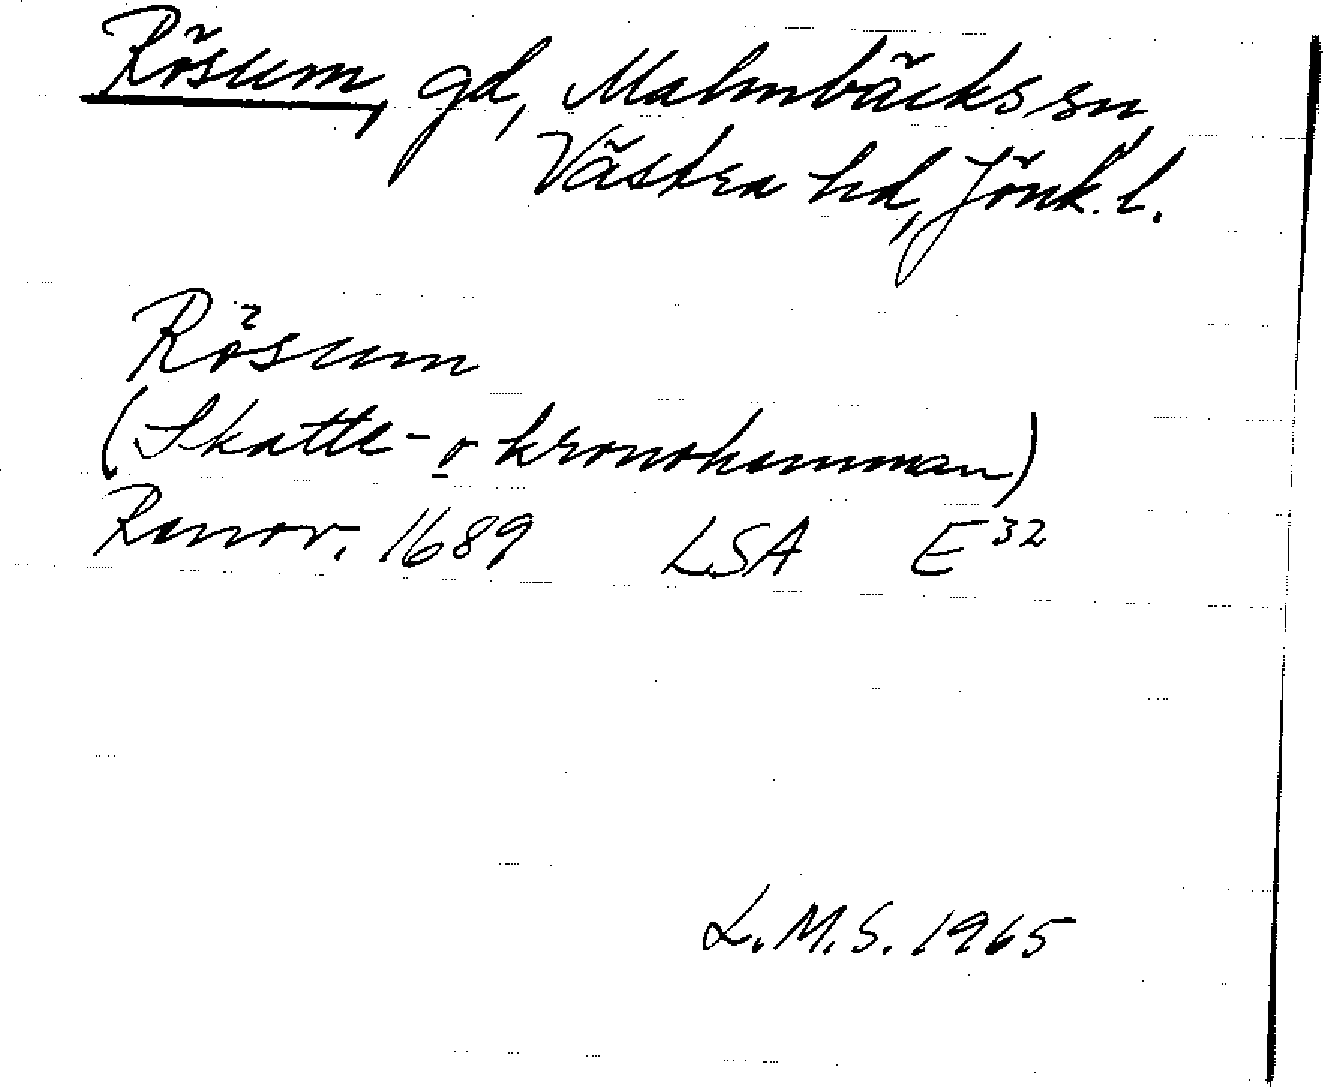 Rösum, gd, Malmbäcks sn
Västra hd, Jönk. l.
Rösum
(Skatte- o kronohemman)
Renov. 1689 LSA E 32
L.M.S. 1965